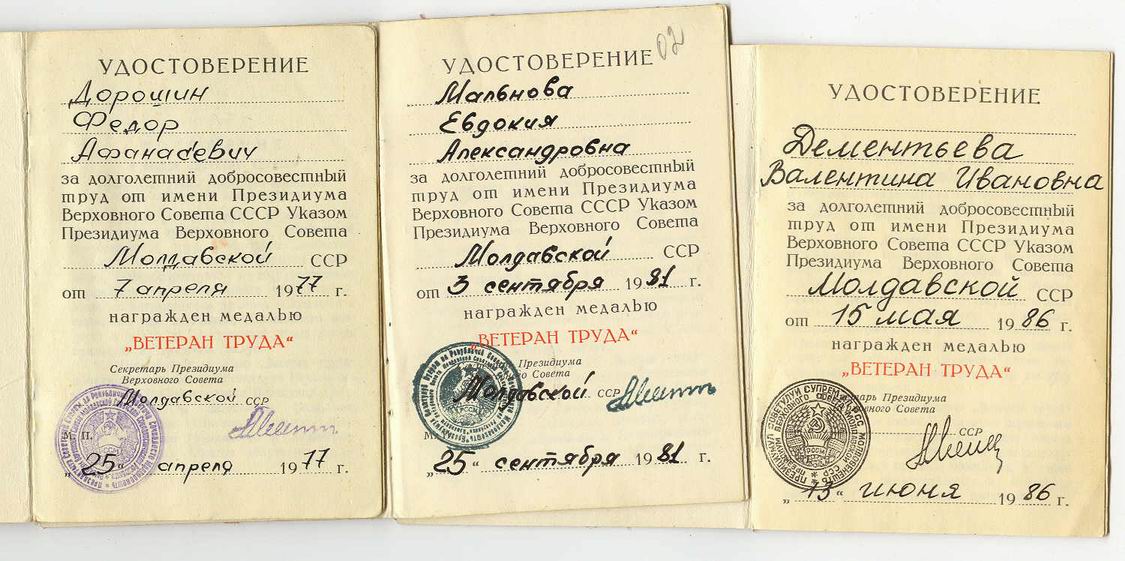 УДОСТОВЕРЕНИЕ
Дорошин
Федор
Афанасевич
за долголетний добросовестный
труд от имени Президиума
Верховного Совета СССР Указом
Президиума Верховного Совета
Молдавской ССР
от 7 апреля 1977 г.
награжден медалью
„ВЕТЕРАН ТРУДА“
Секретарь Президиума
Верховного Совета
Молдавской ССР
М. П.
„25“ апреля 1977 г.
УДОСТОВЕРЕНИЕ
02
Мальнова
Евдокия
Александровна
за долголетний добросовестный
труд от имени Президиума
Верховного Совета СССР Указом
Президиума Верховного Совета
Молдавской ССР
от 3 сентября 1981 г.
награжден медалью
„ВЕТЕРАН ТРУДА“
Президиума
Совета
Молдавской ССР
„25“ сентября 1981 г.
УДОСТОВЕРЕНИЕ
Дементьева
Валентина Ивановна
за долголетний добросовестный
труд от имени Президиума
Верховного Совета СССР Указом
Президиума Верховного Совета
Молдавской ССР
от 15 мая 1986 г.
награжден медалью
„ВЕТЕРАН ТРУДА“
Президиума
Совета
ССР
„13“ июня 1986 г.